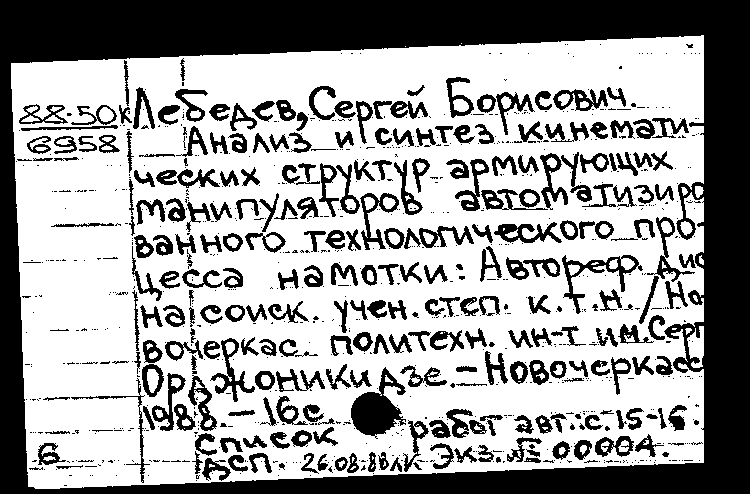 88-50к
6958
Лебедев, Сергей Борисович.
Анализ и синтез кинемати-
ческих структур армирующих
манипуляторов автоматизиро
ванного технологического про-
цесса намотки: Автореф. дис
на соиск. учен. степ. к.т.н. / Но-
вочеркас. политехн. ин-т им. Серг
Орджоникидзе. - Новочеркасс
1988. - 16с.
Список работ авт.: с. 15-16.
6
ДСП. 26.08.88 лк Экз. № 00004.